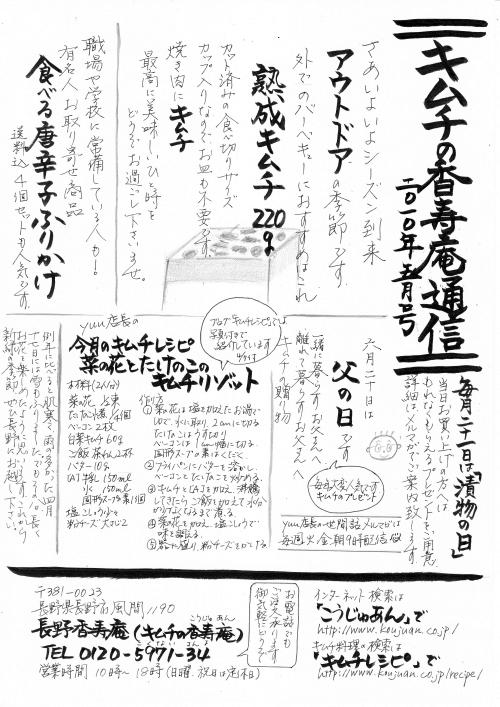 キムチの香寿庵通信
二〇一〇年五月号
さあいよいよシーズン到来
アウトドアの季節です
外でのバーベキューにおすすめはこれ
熟成キムチ220g
カット済みの食べ切りサイズ
カップ入りなのでお皿も不要です。
焼き肉にキムチ
最高に美味しいひと時を
どうぞお過ごし下さいませ。
職場や学校に常備している人も!
有名人お取り寄せ商品
食べる唐辛子ふりかけ
送料込4個セットも人気です。
毎月二十一日は「漬物の日」
当日お買い上げの方へは
もれなくもらえるプレゼントをご用意
詳細はメルマガでご案内致します。
六月二十日は
父の日です
一緒に暮らすお父さんへ
離れて暮らすお父さんへ
キムチの贈物
毎年大変人気です
キムチのプレゼント
yuu店長の世間話メルマガは
毎週火/金朝9時配信
ブログ「キムチレシピ」では
写真付きで
紹介しています
yuu店長の
今月のキムチレシピ
菜の花とたけのこの
キムチリゾット
材料(2人分)
菜の花 1/2束
ベーコン 2枚
白菜キムチ 60g
ご飯 茶わん2杯
バター 10g
水 150ml
塩こしょう 少々
粉チーズ 大さじ2
作り方
①菜の花は塩を加えたお湯で
ゆで、水に取り、2cmに切る
たけのこはうす切り
ベーコンは1cm幅に切る。
②フライパンにバターを溶かし、
ベーコンとたけのこを炒める。
③キムチと(A)を加え、沸騰
してきたらご飯を加えて水分
がなくなるまで煮る。
④菜の花を加え、塩こしょうで
味を調える。
⑤器に盛り、粉チーズをかける。
例年に比べると肌寒く雨の多かった四月
十七日には雪もふりました。でもその分長く
お花を楽しめたように思います。これから
新緑の季節、ぜひ長野にお越し下さい。
〒381-0023
長野県長野市風間1190
長野香寿庵(キムチの香寿庵)
こうじゅあん
TEL 0120-5971-34
営業時間 10時~18時(日曜.祝日は定休)
お電話でも
ご注文承ります
御気軽にどうぞ
インターネット検索は
「こうじゅあん」で
http://www.koujuan.co.jp/
キムチ料理の検索は
「キムチレシピ」で
http://www.koujuan.co.jp/recipe/